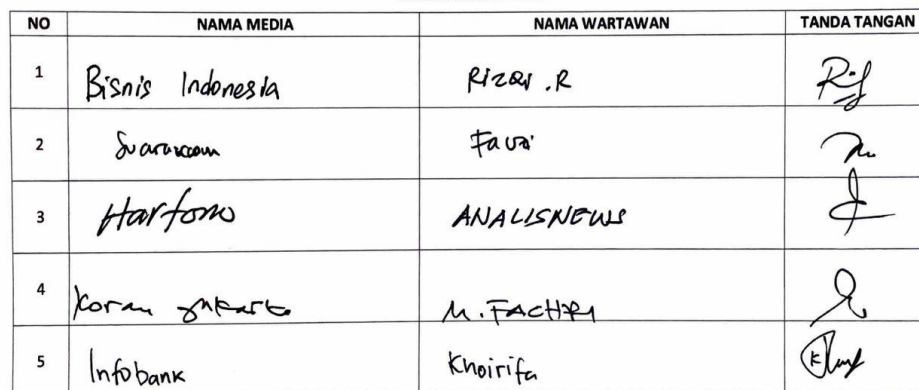 NO NAMA MEDIA NAMA WARTAWAN TANDA TANGAN
1 Bisnis Indonesia Rizqi .R
2 Fauzi
3 Hartono ANALISNEWS
4 Koran Jakarta M. FACHRI
5 Infobank Khoirifa